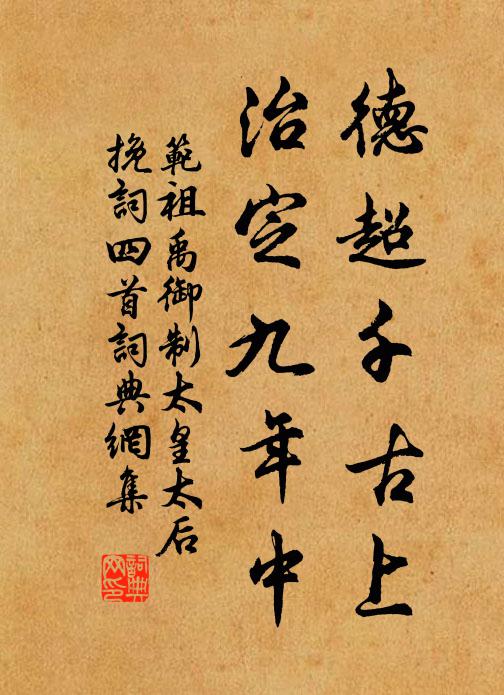 德超千古上
治定九年中
範祖禹御制太皇太后
挽詞四首詞典網集
詞典
网印